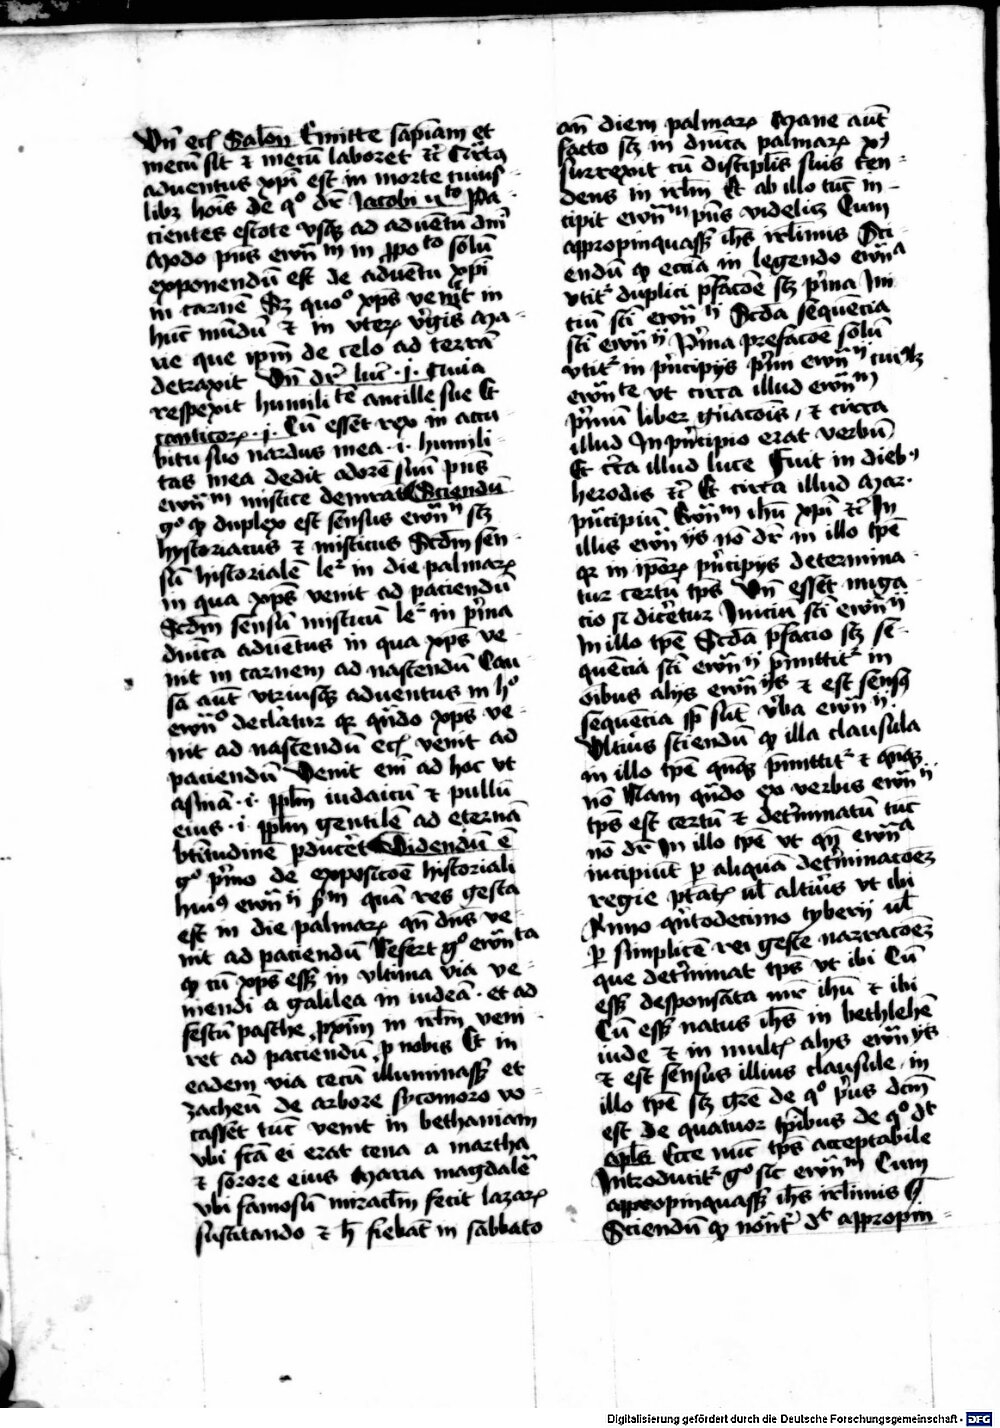 Vn̄ eciā Salōn Emitte sapiam et
mecū sit et mecū laboret etc̄ Tercius
aduentus xpī est in morte cuius
libȝ hoīs de qo dr̄ Jacobi vlto Pa-
cientes estote vsqȝ ad aduētū dnī
Modo pn̄s ewnm in ppoto solū
exponendū est de aduentu xpī
in carnē Sȝ quoo xps venit in
huc mūdū et in vterū v̄gīs Ma-
rie que ipm̄ de celo ad terrā
detraxit Vn̄ dr̄ luc̄ .i. Quia
respexit humilitē ancille sue Et
canticorȝ .i. Cū essēt rex in accu-
bitu suo nardus mea .i. humili-
tas mea dedit odorē suū pn̄s
ewnm mistice Sciendū
go qȝ duplex est sensus ewnii scȝ
hystoriacus et misticus Scdm̄ sen-
sū historialē legr in die palmarȝ
in qua xps venit ad paciendū
Scdm̄ sensū misticū legr in pima
dnīca aduētus in qua xps ve-
nit in carnem ad nascendū Cau
sā aut̄ vtriusqȝ aduentus in ho
ewno declatur qr qn̄do xps ve-
nit ad nascendū eciā venit ad
paciendū Venit em̄ ad hoc vt
asinā .i. ppl̄m iudaicū et pullū
eius .i. ppl̄m gentilē ad eternā
btitudinē pducēt Videndū ē
go pimo de expositoē historiali
huiꝰ ewnii sm quā res gesta
est in die palmarȝ qn̄ dn̄s ve-
nit ad paciendū Refert go ewnta
qȝ cū xps essȝ in vltima via ve-
niendi a galilea in iudeā . et ad
festū pasche pximū in irl̄m veni-
ret ad paciendū p nobis Et in
eadem via cecū illuminassȝ et
zacheū de arbore sycomoro vo-
cassēt tūc venit in bethaniam
vbi fcā ei erat cena a martha
et sorore eius Maria magdalē
vbi famosū miraclm̄ fecit lazarȝ
suscitando et h̄ fiebāt in sabbato
an̄ diem palmarȝ Mane aut̄
facto scȝ in dnīca palmarȝ xꝰ
surrexit cū disciplīs suis ten-
dens in irl̄m Et ab illo tūc in-
cipit ewnm pn̄s videliȝ Cum
appropinquassȝ ih̄s irl̄imis Sci
endū qȝ ecc̄ia in legendo ewna
vtitr duplici pfacōe scȝ pima Ini
ciū scī ewnii Scdā sequēcia
scī ewnii Pima prefacōe solū
vtitr in pincipijs pimi ewnii cuiuslȝ
ewnte vt circa illud ewnm
pimū liber gn̄acoīs / et circa
illud In pincipio erat verbū
Et cca illud luce Fuit in diebꝰ
herodis etc̄ Et circa illud Mar.
pincipiū Ewnm ihū xpī etc̄ In
illis ewnijs nō dr̄ in illo tpē
qr in ipōrȝ pincipijs determina-
tur certū tps Vn̄ essēt nuga-
cio si dicētur Iniciū scī ewnii
In illo tpē Scdā pfacio scȝ se-
quēcia scī ewnii pmittitr in
oībus alijs ewnijs et est sensꝰ
sequēcia sȝ sūt v̄ba ewnii
Vltius sciendū qȝ illa clausula
in illo tpē qn̄qȝ pmittitr et qn̄qȝ
nō Nam qn̄do ex verbis ewnii
tps est certū et detminatū tūc
nō dr̄ In illo tpē vt qn̄ ewna
incipiūt p aliquā detminacoēȝ
regie ptatȝ vl̄ altius vt ibi
Anno qintodecimo tyberij vl̄
p simplicē rei geste narracoēȝ
que detminat tps vt ibi Cū
essȝ desponsata mr̄ ihū et ibi
Cū essȝ natus ih̄s in bethlehē
iude et in multȝ alijs ewnijs
et est sensus illius clausule / in
illo tpē scȝ gre de qo pius dcm̄
est De quatuor tpibus de qo dt
apl̄s Ecce nūc tps acceptabile
Introducitr go sic ewnm Cum
appropinquassȝ ih̄s irl̄imis
Sciendū qȝ dt appropin-
Digitalisierung gefördert durch die Deutsche Forschungsgemeinschaft - DFG